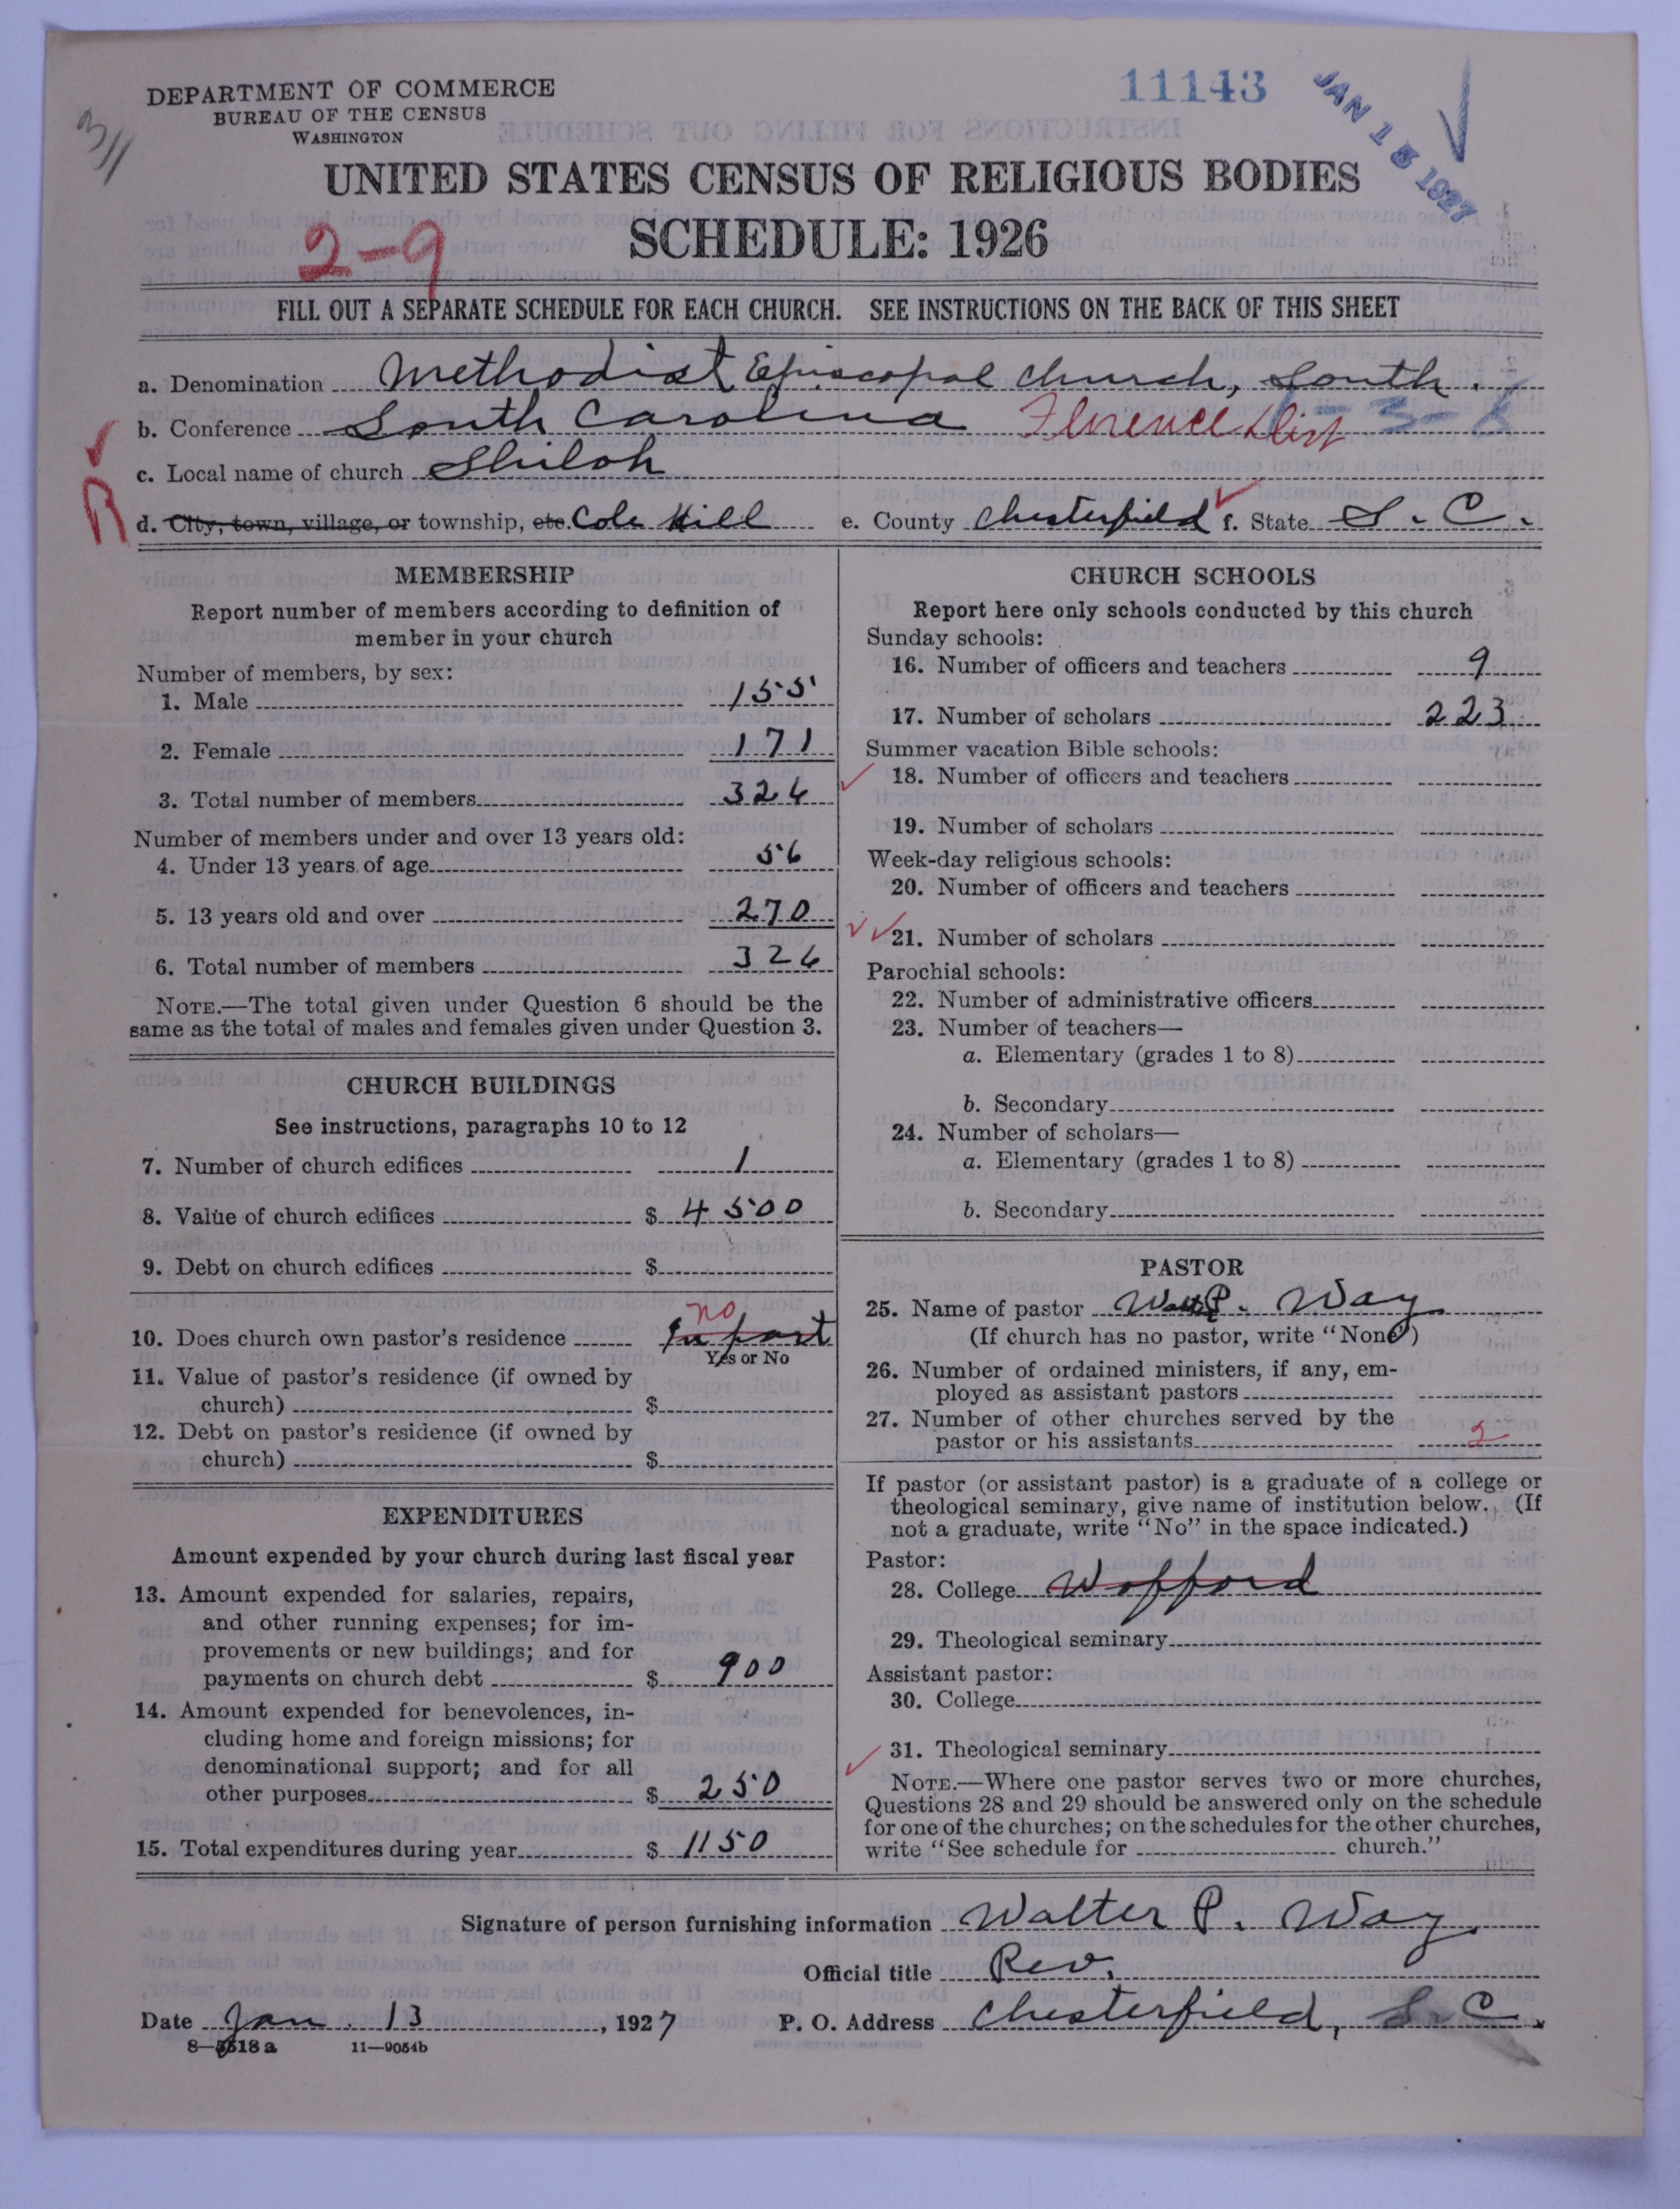 DEPARTMENT OF COMMERCE
BUREAU OF THE CENSUS
WASHINGTON
11143
JAN 15 1927
3/1
UNITED STATES CENSUS OF RELIGIOUS BODIES
2-9
SCHEDULE: 1926
FILL OUT A SEPARATE SCHEDULE FOR EACH CHURCH. SEE INSTRUCTIONS ON THE BACK OF THIS SHEET
a. Denomination Methodist Episcopal Church, South.
b. Conference South Carolina Florence Dist
c. Local name of church Shiloh
R
d. City, town, village, or township, etc. Cole Hill e. County Chesterfield f. State S. C.
MEMBERSHIP
Report number of members according to definition of
member in your church
Number of members, by sex:
1. Male 155
2. Female 171
3. Total number of members 326
Number of members under and over 13 years old:
4. Under 13 years of age 56
5. 13 years old and over 270
6. Total number of members 326
NOTE.—The total given under Question 6 should be the
same as the total of males and females given under Question 3.
CHURCH BUILDINGS
See instructions, paragraphs 10 to 12
7. Number of church edifices 1
8. Value of church edifices $ 4500
9. Debt on church edifices $
no
10. Does church own pastor's residence In part
Yes or No
11. Value of pastor's residence (if owned by
church) $
12. Debt on pastor's residence (if owned by
church) $
EXPENDITURES
Amount expended by your church during last fiscal year
13. Amount expended for salaries, repairs,
and other running expenses; for im-
provements or new buildings; and for
payments on church debt $ 900
14. Amount expended for benevolences, in-
cluding home and foreign missions; for
denominational support; and for all
other purposes $ 250
15. Total expenditures during year $ 1150
CHURCH SCHOOLS
Report here only schools conducted by this church
Sunday schools:
16. Number of officers and teachers 9
17. Number of scholars 223
Summer vacation Bible schools:
18. Number of officers and teachers
19. Number of scholars
Week-day religious schools:
20. Number of officers and teachers
21. Number of scholars
Parochial schools:
22. Number of administrative officers
23. Number of teachers—
a. Elementary (grades 1 to 8)
b. Secondary
24. Number of scholars—
a. Elementary (grades 1 to 8)
b. Secondary
PASTOR
25. Name of pastor Walt P. Way
(If church has no pastor, write "None")
26. Number of ordained ministers, if any, em-
ployed as assistant pastors
27. Number of other churches served by the
pastor or his assistants 2
If pastor (or assistant pastor) is a graduate of a college or
theological seminary, give name of institution below. (If
not a graduate, write "No" in the space indicated.)
Pastor:
28. College Wofford
29. Theological seminary
Assistant pastor:
30. College
31. Theological seminary
NOTE.—Where one pastor serves two or more churches,
Questions 28 and 29 should be answered only on the schedule
for one of the churches; on the schedules for the other churches,
write "See schedule for church."
Signature of person furnishing information Walter P. Way
Official title Rev.
Date Jan. 13, 1927 P. O. Address Chesterfield, S. C.
8—5518 a 11—9054b